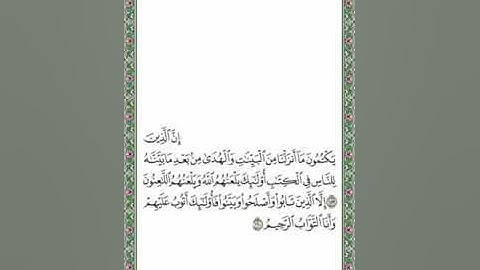 إِنَّ ٱلَّذِينَ
يَكْتُمُونَ مَآ أَنزَلْنَا مِنَ ٱلْبَيِّنَٰتِ وَٱلْهُدَىٰ مِنۢ بَعْدِ مَا بَيَّنَّٰهُ
لِلنَّاسِ فِي ٱلْكِتَٰبِ أُو۟لَٰٓئِكَ يَلْعَنُهُمُ ٱللَّهُ وَيَلْعَنُهُمُ ٱللَّٰعِنُونَ
۝١٥٩ إِلَّا ٱلَّذِينَ تَابُوا۟ وَأَصْلَحُوا۟ وَبَيَّنُوا۟ فَأُو۟لَٰٓئِكَ أَتُوبُ عَلَيْهِمْ
وَأَنَا ٱلتَّوَّابُ ٱلرَّحِيمُ ۝١٦٠